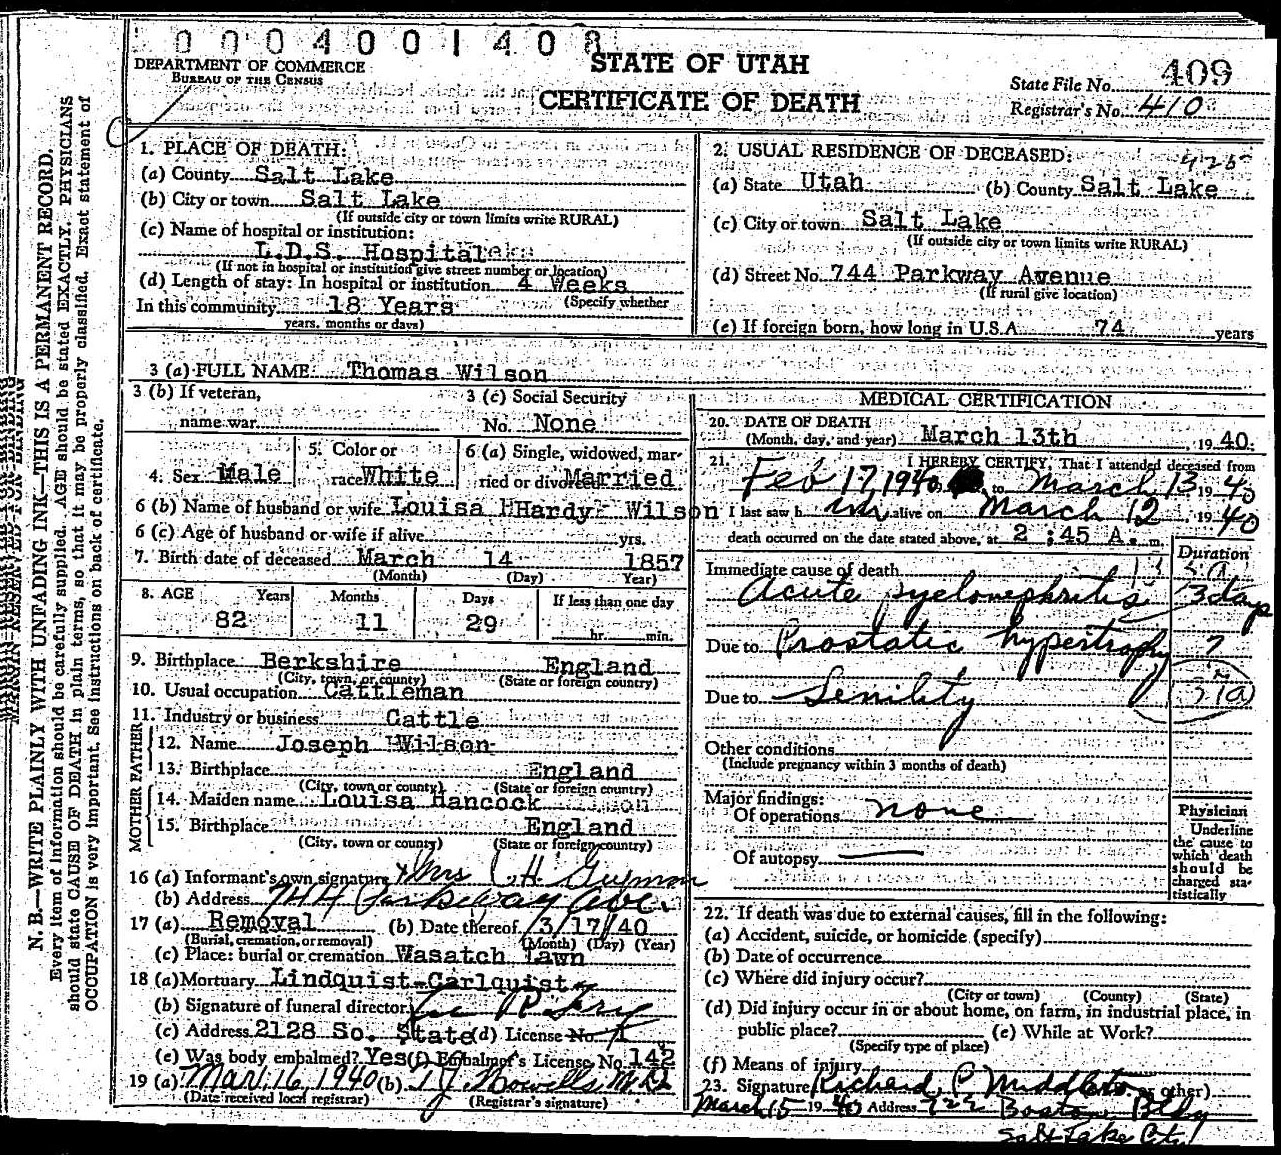 0004001408
DEPARTMENT OF COMMERCE
BUREAU OF THE CENSUS
STATE OF UTAH
CERTIFICATE OF DEATH
State File No. 409
Registrar's No. 410
1. PLACE OF DEATH:
(a) County Salt Lake
(b) City or town Salt Lake
(If outside city or town limits write RURAL)
(c) Name of hospital or institution:
L.D.S. Hospital
(If not in hospital or institution give street number or location)
(d) Length of stay: In hospital or institution 4 Weeks
(Specify whether
In this community 18 Years
years, months or days)
2. USUAL RESIDENCE OF DECEASED:
(a) State Utah (b) County Salt Lake
(c) City or town Salt Lake
(If outside city or town limits write RURAL)
(d) Street No. 744 Parkway Avenue
(If rural give location)
(e) If foreign born, how long in U.S.A. 74 years
3 (a) FULL NAME: Thomas Wilson
3 (b) If veteran, name war
3 (c) Social Security No. None
4. Sex Male
5. Color or race White
6 (a) Single, widowed, married or divorced Married
6 (b) Name of husband or wife Louisa Hardy Wilson
6 (c) Age of husband or wife if alive yrs.
7. Birth date of deceased March 14 1857
(Month) (Day) Year)
8. AGE Years Months Days If less than one day
82 11 29 hr. min.
9. Birthplace Berkshire England
(City, town, or county) (State or foreign country)
10. Usual occupation Cattleman
11. Industry or business Cattle
FATHER
12. Name Joseph Wilson
13. Birthplace England
(City, town or county) (State or foreign country)
MOTHER
14. Maiden name Louisa Hancock
15. Birthplace England
(City, town or county) (State or foreign country)
16 (a) Informant's own signature Mrs C H Guzman
(b) Address 744 Parkway Ave.
17 (a) Removal (b) Date thereof 3/17/40
(Burial, cremation, or removal) (Month) (Day) (Year)
(c) Place: burial or cremation Wasatch Lawn
18 (a) Mortuary Lindquist-Carlquist
(b) Signature of funeral director
(c) Address 2128 So. State (d) License No.
(e) Was body embalmed? Yes (f) Embalmer's License No. 142
19 (a) Mar. 16, 1940 (b) T J Howells M.D.
(Date received local registrar) (Registrar's signature)
MEDICAL CERTIFICATION
20. DATE OF DEATH
(Month, day, and year) March 13th, 1940.
21. I HEREBY CERTIFY, That I attended deceased from
Feb 17, 1940 to March 13 1940
I last saw h im alive on March 12, 1940
death occurred on the date stated above, at 2:45 A. m.
Duration
Immediate cause of death
Acute pyelonephritis 3 days
Due to Prostatic hypertrophy ?
Due to Senility
Other conditions
(Include pregnancy within 3 months of death)
Major findings:
Of operations none
Of autopsy
Physician
Underline
the cause to
which death
should be
charged sta-
tistically
22. If death was due to external causes, fill in the following:
(a) Accident, suicide, or homicide (specify)
(b) Date of occurrence
(c) Where did injury occur?
(City or town) (County) (State)
(d) Did injury occur in or about home, on farm, in industrial place, in
public place? (e) While at Work?
(Specify type of place)
(f) Means of injury
23. Signature Richard P Middleton or other)
March 15 1940 Address Boston Bldg
Salt Lake City
N. B.—WRITE PLAINLY WITH UNFADING INK—THIS IS A PERMANENT RECORD.
Every item of information should be carefully supplied. AGE should be stated EXACTLY. PHYSICIANS
should state CAUSE OF DEATH in plain terms, so that it may be properly classified. Exact statement of
OCCUPATION is very important. See instructions on back of certificate.
MARGIN RESERVED FOR BINDING